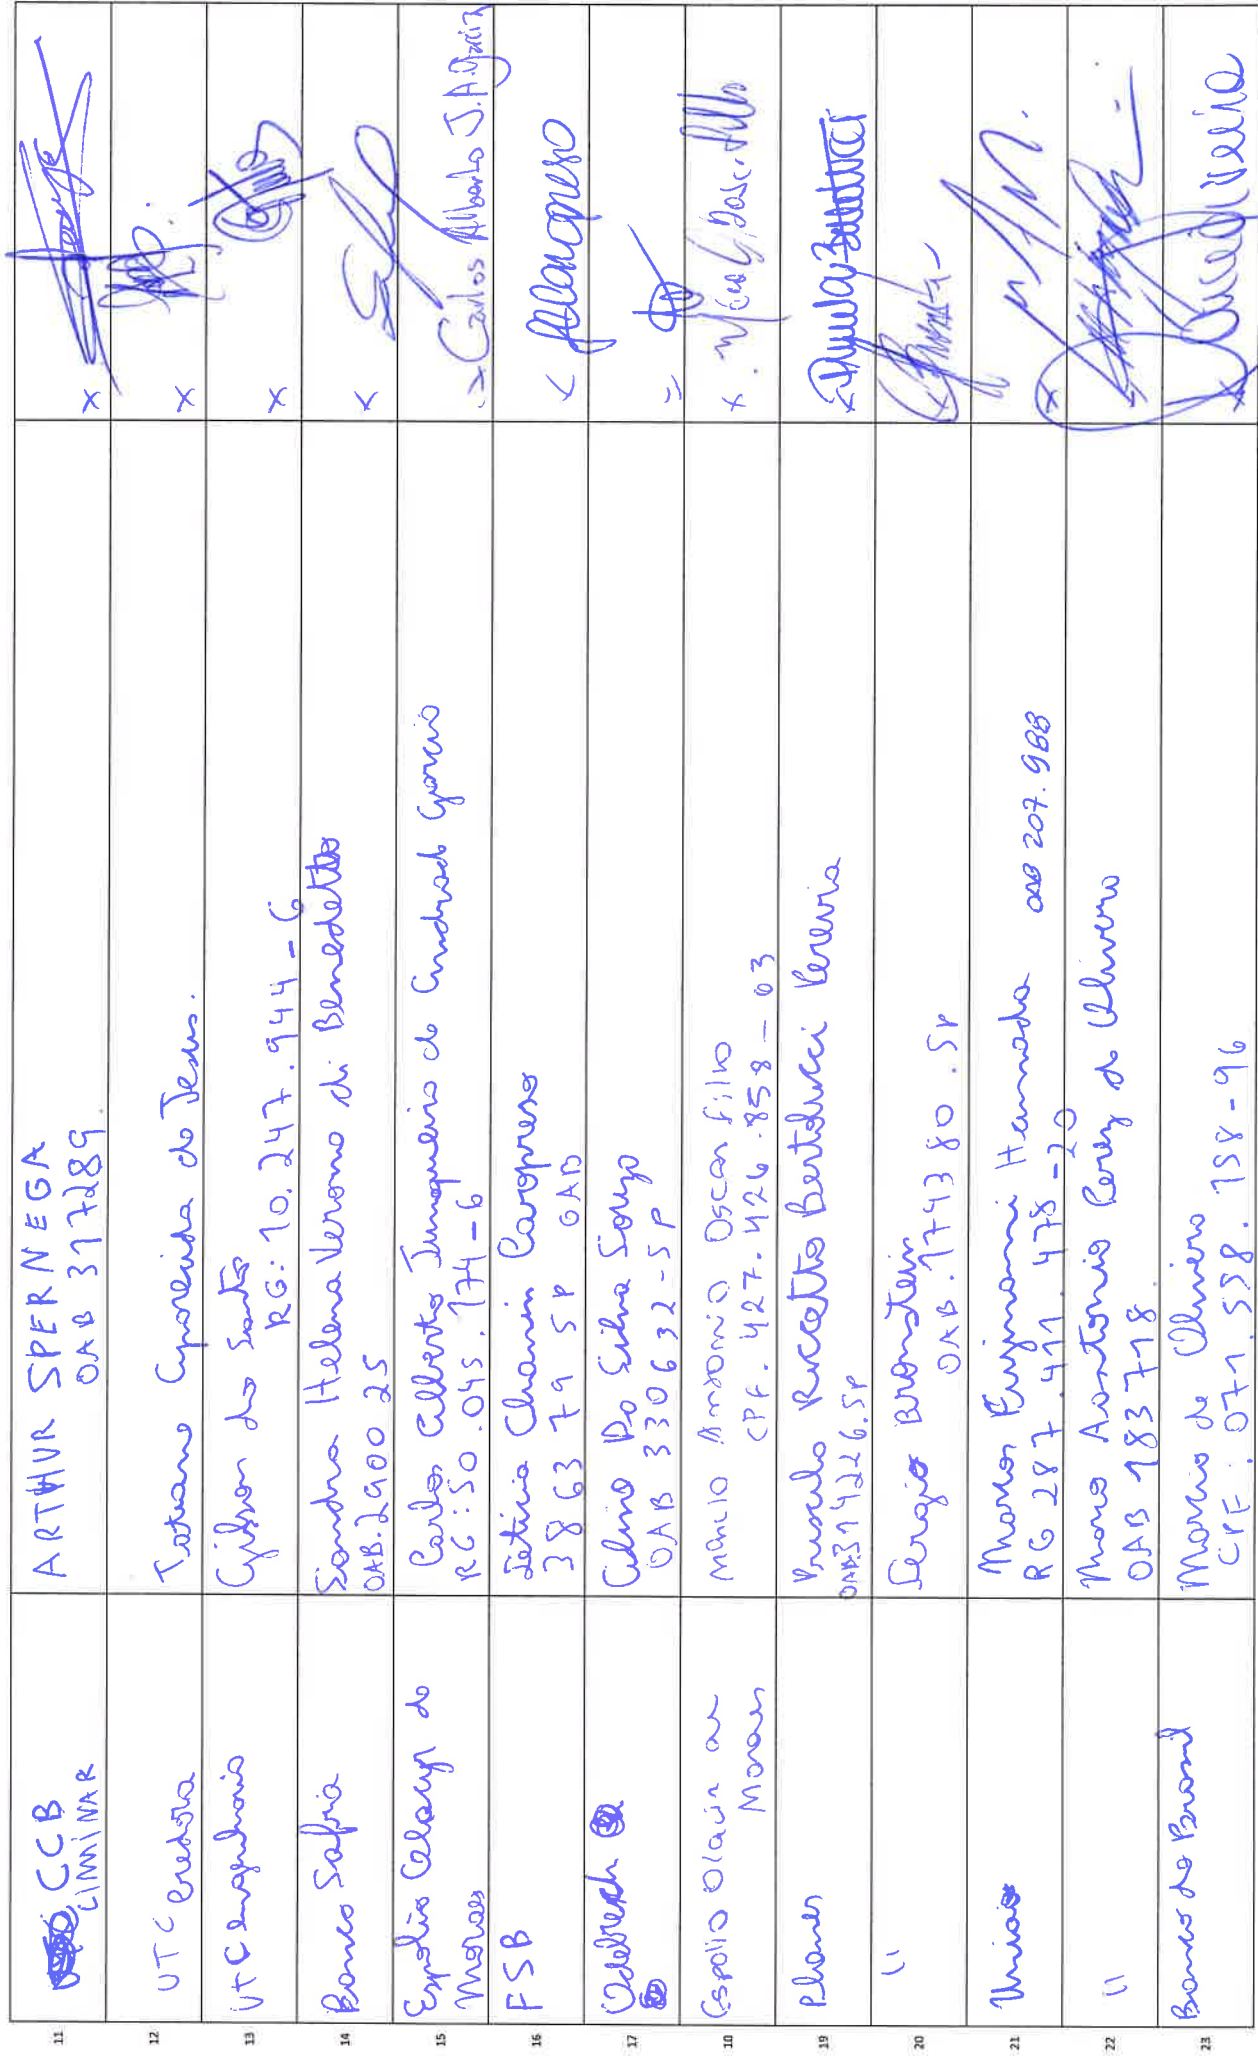 11
CCB
LIMINAR
ARTHUR SPERNEGA
OAB 317289
x
12
UTC credora
Tatiane Aparecida de Jesus.
x
13
UTC engenharia
Gilson dos Santos
RG: 10.247.944-6
x
14
Banco Safra
Sandra Helena Verono di Benedetto
OAB.2900 25
x
15
Espolio Olacyr de
Moraes
Carlos Alberto Junqueira de Andrade Garcia
RG: 50.045.174-6
x Carlos Alberto J. A. Garcia
16
FSB
Leticia Chamin Caropreso
3863 79 SP OAB
Caropreso
17
Odebrech
Da Silva Souza
OAB 330632-SP
18
Espolio Olacir de
Moraes
Mancio Antonio Oscar Filho
CPF. 427.426.858-03
x
19
Planer
Priscila Riccetto Bertolucci Pereira
OAB.314226.SP
20
"
Sergio Bronstein
OAB.174380.SP
21
União
Marcos Fujinami Hamada OAB 207.988
RG 287.411.478-20
x
22
"
Marco Aontonio Perez de Oliveira
OAB 183718
23
Banco do Brasil
Marcio de Oliveira
CPF: 071.538.758-96
x